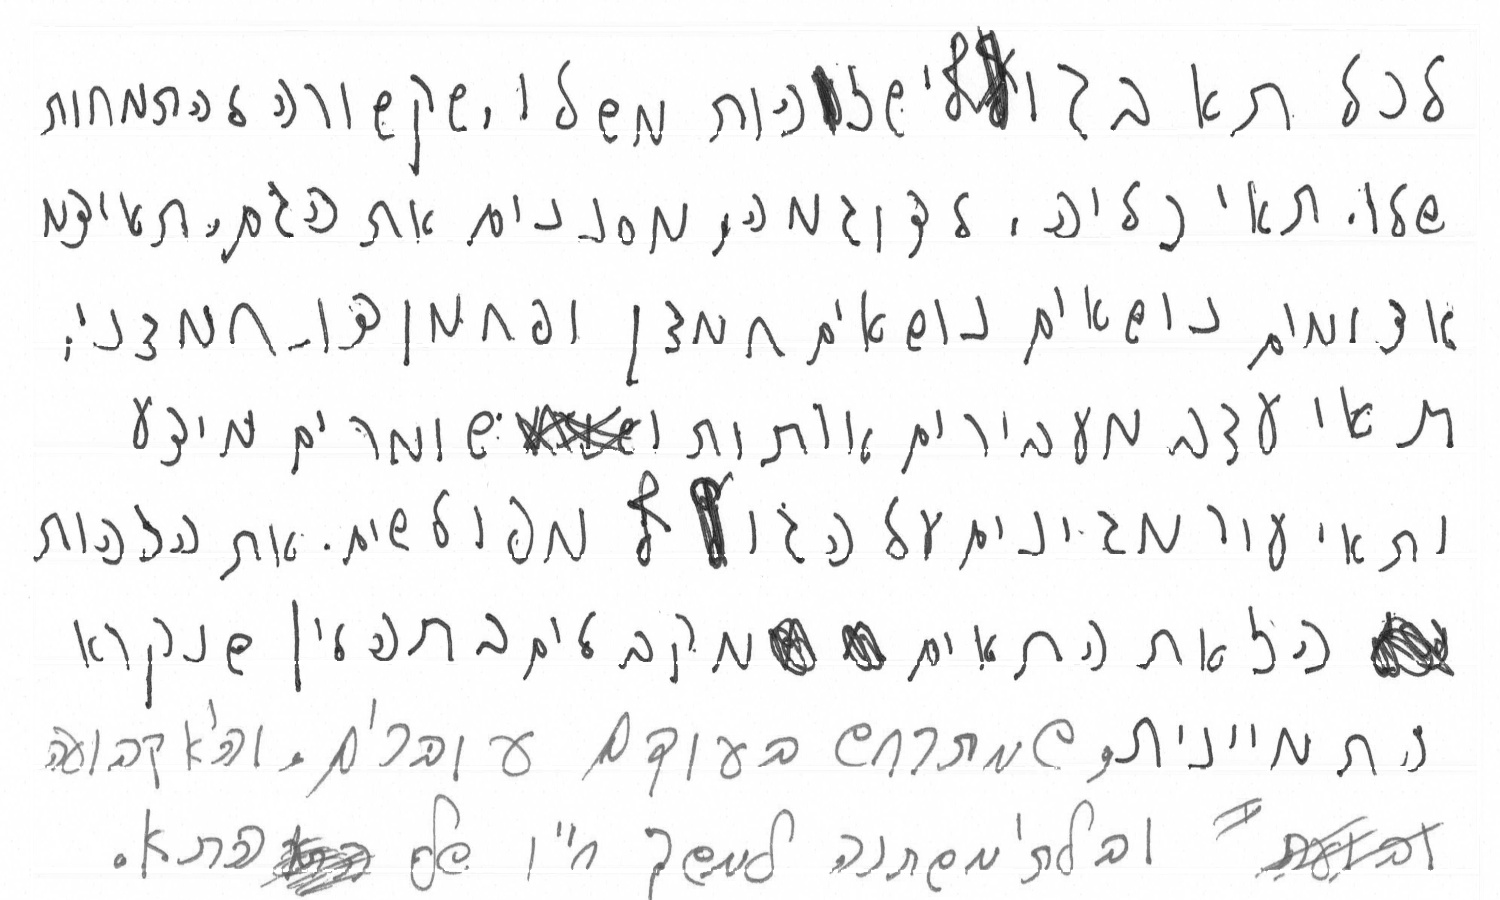 לכל תא בגוף יש זהות משלו, שקשורה להתמחות
שלו. תאי כליה, לדוגמה, מסננים את הדם, תאי דם
אדומים נושאים נושאים חמצן ופחמן דו-חמצני,
תאי עצב מעבירים אותות ושומרים מידע
ותאי עור מגינים על הגוף מפולשים. את הזהות
הזאת התאים מקבלים בתהליך שנקרא
התמיינות, שמתרחש בעודם עוברים, והיא קבועה
ובלתי משתנה למשך חייו של התא.